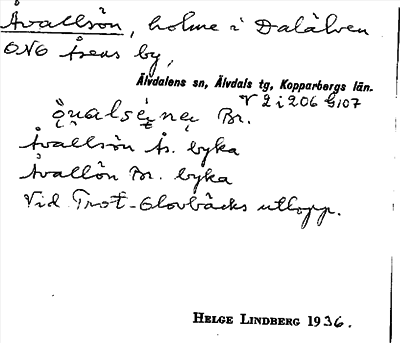 Åvallsön, holme i Dalälven
ONO Åsens by,
Älvdalens sn, Älvdals tg, Kopparbergs län.
V 2 i 206 G 107
Br.
Åvallsön Ås. byka
Åvallön Br. byka
Vid Trot-Glovbäcks utlopp.
HELGE LINDBERG 1936.